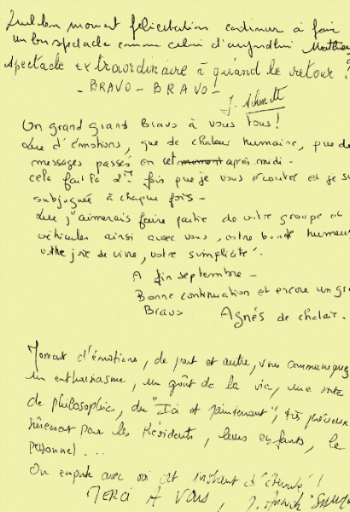 Quel bon moment félicitations continuer à faire
un bon spectacle comme celui d'aujourdhui Mathieu
Spectacle extraordinaire à quand le retour ?
- BRAVO - BRAVO !
J.
Un grand grand Bravo à vous Tous !
Que d'émotions, que de chaleur humaine, que de
messages passés en cet après midi -
cela fait la 2ème fois que je vous écouter et je su
subjuguée à chaque fois -
Que j'aimerais faire partie de votre groupe et
véhiculer ainsi avec vous, votre bonne humeur
votre joie de vivre, votre simplicité.
A fin septembre -
Bonne continuation et encore un gra
Bravo Agnés de chalais.
Moment d'émotions, de part et autre, vous communiquez
un enthousiasme, un goût de la vie, une note
de philosophie, du "Ici et maintenant", très précieux
sûrement pour les Résidents, leurs enfants, le
personnel ...
On emporte avec soi cet instant d'éternité !
MERCI A VOUS,